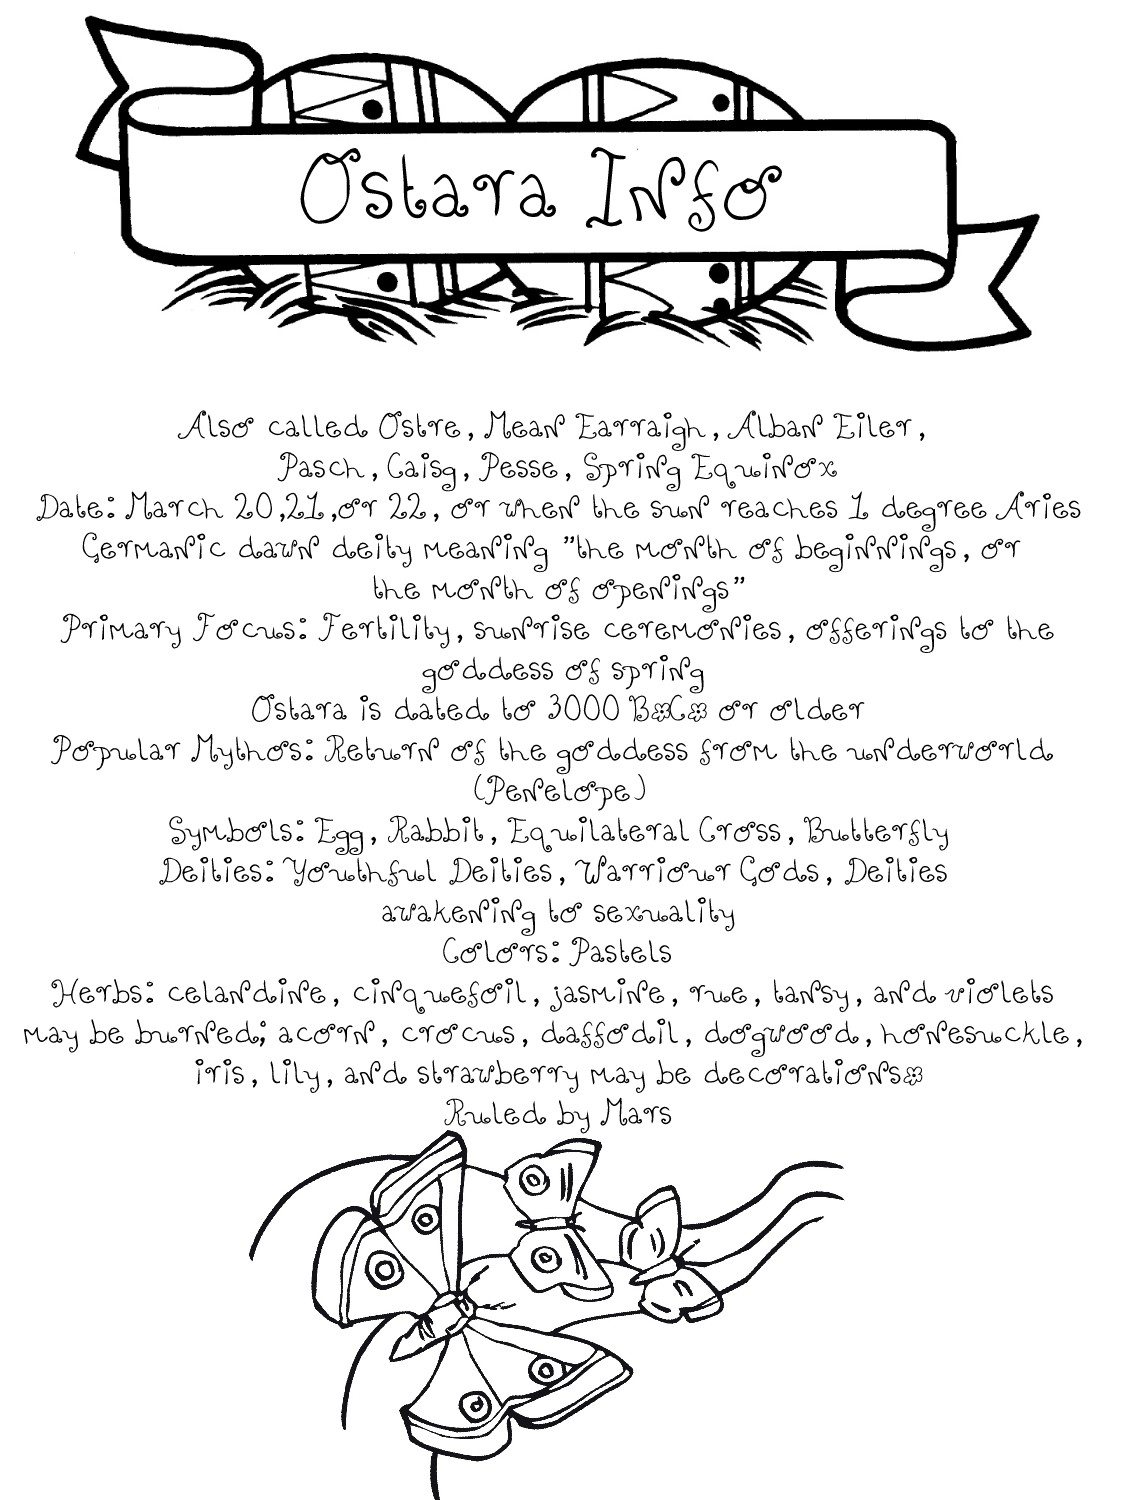 Ostara Info
Also called Ostre, Mean Earraigh, Alban Eiler,
Pasch, Caisg, Pesse, Spring Equinox
Date: March 20,21,or 22, or when the sun reaches 1 degree Aries
Germanic dawn deity meaning "the month of beginnings, or
the month of openings"
Primary Focus: Fertility, sunrise ceremonies, offerings to the
goddess of spring
Ostara is dated to 3000 B.C. or older
Popular Mythos: Return of the goddess from the underworld
(Penelope)
Symbols: Egg, Rabbit, Equilateral Cross, Butterfly
Deities: Youthful Deities, Warriour Gods, Deities
awakening to sexuality
Colors: Pastels
Herbs: celandine, cinquefoil, jasmine, rue, tansy, and violets
may be burned; acorn, crocus, daffodil, dogwood, honesuckle,
iris, lily, and strawberry may be decorations.
Ruled by Mars